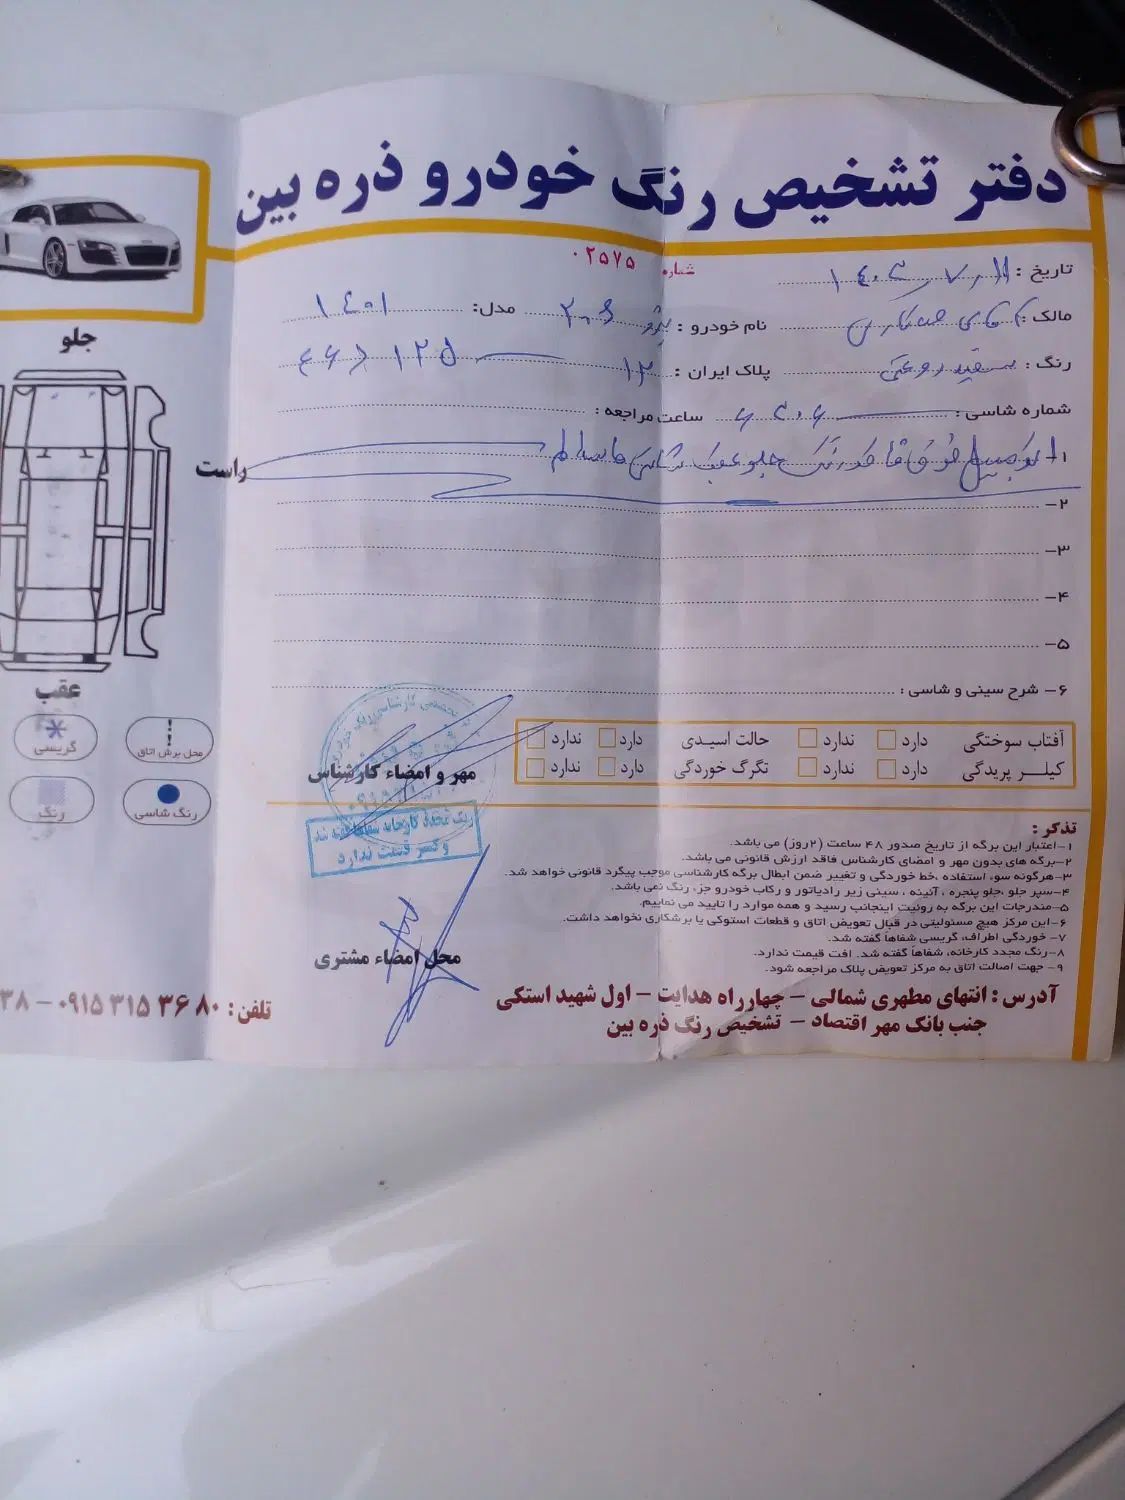 دفتر تشخیص رنگ خودرو ذره بین
شماره ۰۲۵۷۵
تاریخ :
مالک : آقای
نام خودرو : پژو ۲۰۶
مدل: ۱۴۰۱
رنگ : سفید روغنی
پلاک ایران : ۱۲
شماره شاسی :
ساعت مراجعه :
۱- اتومبیل فوق فاقد رنگ جلو عقب شاسی ها سالم
۲-
۳-
۴-
۵-
۶- شرح سینی و شاسی :
آفتاب سوختگی دارد ندارد حالت اسیدی دارد ندارد
کیلـر پریدگی دارد ندارد تگرگ خوردگی دارد ندارد
مهر و امضاء کارشناس
رنگ مجدد کارخانه شفاها گفته شد
و کسر قیمت ندارد
تذکر :
۱-اعتبار این برگه از تاریخ صدور ۴۸ ساعت (۲روز) می باشد.
۲-برگه های بدون مهر و امضای کارشناس فاقد ارزش قانونی می باشد.
۳-هرگونه سوء استفاده ،خط خوردگی و تغییر ضمن ابطال برگه کارشناسی موجب پیگرد قانونی خواهد شد.
۴-سپر جلو ،جلو پنجره ، آئینه ، سینی زیر رادیاتور و رکاب خودرو جزء رنگ نمی باشد.
۵-مندرجات این برگه به روئیت اینجانب رسید و همه موارد را تایید می نمایم.
۶-این مرکز هیچ مسئولیتی در قبال تعویض اتاق و قطعات استوکی یا برشکاری نخواهد داشت.
۷- خوردگی اطراف، گریسی شفاهاً گفته شد.
۸-رنگ مجدد کارخانه، شفاهاً گفته شد. افت قیمت ندارد.
۹- جهت اصالت اتاق به مرکز تعویض پلاک مراجعه شود.
محل امضاء مشتری
آدرس : انتهای مطهری شمالی - چهارراه هدایت - اول شهید استکی
جنب بانک مهر اقتصاد - تشخیص رنگ ذره بین
تلفن : ۰۹۱۵ ۳۱۵ ۳۶ ۸۰ - ۳۸
جلو
راست
عقب
محل برش اتاق
گریسی
رنگ شاسی
رنگ